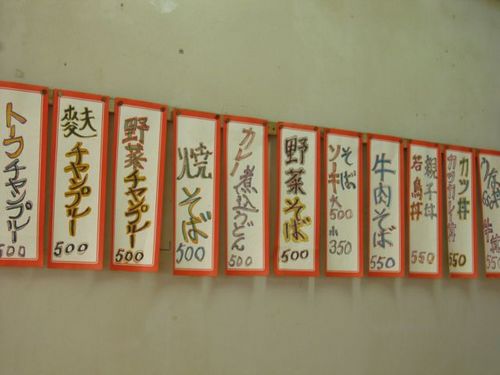 トーフチャンプルー
500
麩チャンプルー
500
野菜チャンプルー
500
焼そば
500
カレー煮込うどん
500
野菜そば
500
ソーキそば
大500
小350
牛肉そば
550
親子丼
若鳥丼
550
カツ丼
550
550